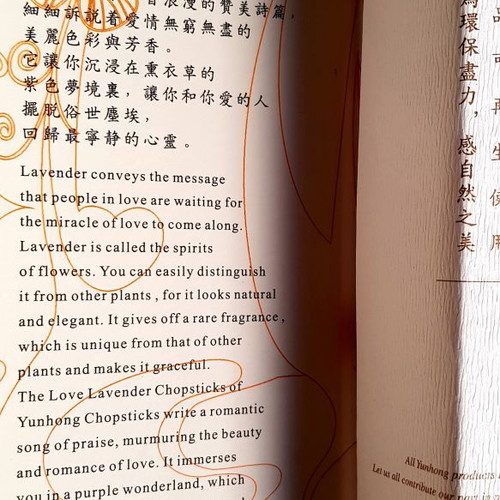 浪漫的贊美詩篇，
細細訴說着愛情無窮無盡的
美麗色彩與芳香。
它讓你沉浸在熏衣草的
紫色夢境裏，讓你和你愛的人
擺脫俗世塵埃，
回歸最寧静的心靈。
Lavender conveys the message
that people in love are waiting for
the miracle of love to come along.
Lavender is called the spirits
of flowers. You can easily distinguish
it from other plants , for it looks natural
and elegant. It gives off a rare fragrance ,
which is unique from that of other
plants and makes it graceful.
The Love Lavender Chopsticks of
Yunhong Chopsticks write a romantic
song of praise, murmuring the beauty
and romance of love. It immerses
you in a purple wonderland, which
品可再生
為環保盡力，感自然之美
All Yunhong products
Let us all contribute our part in